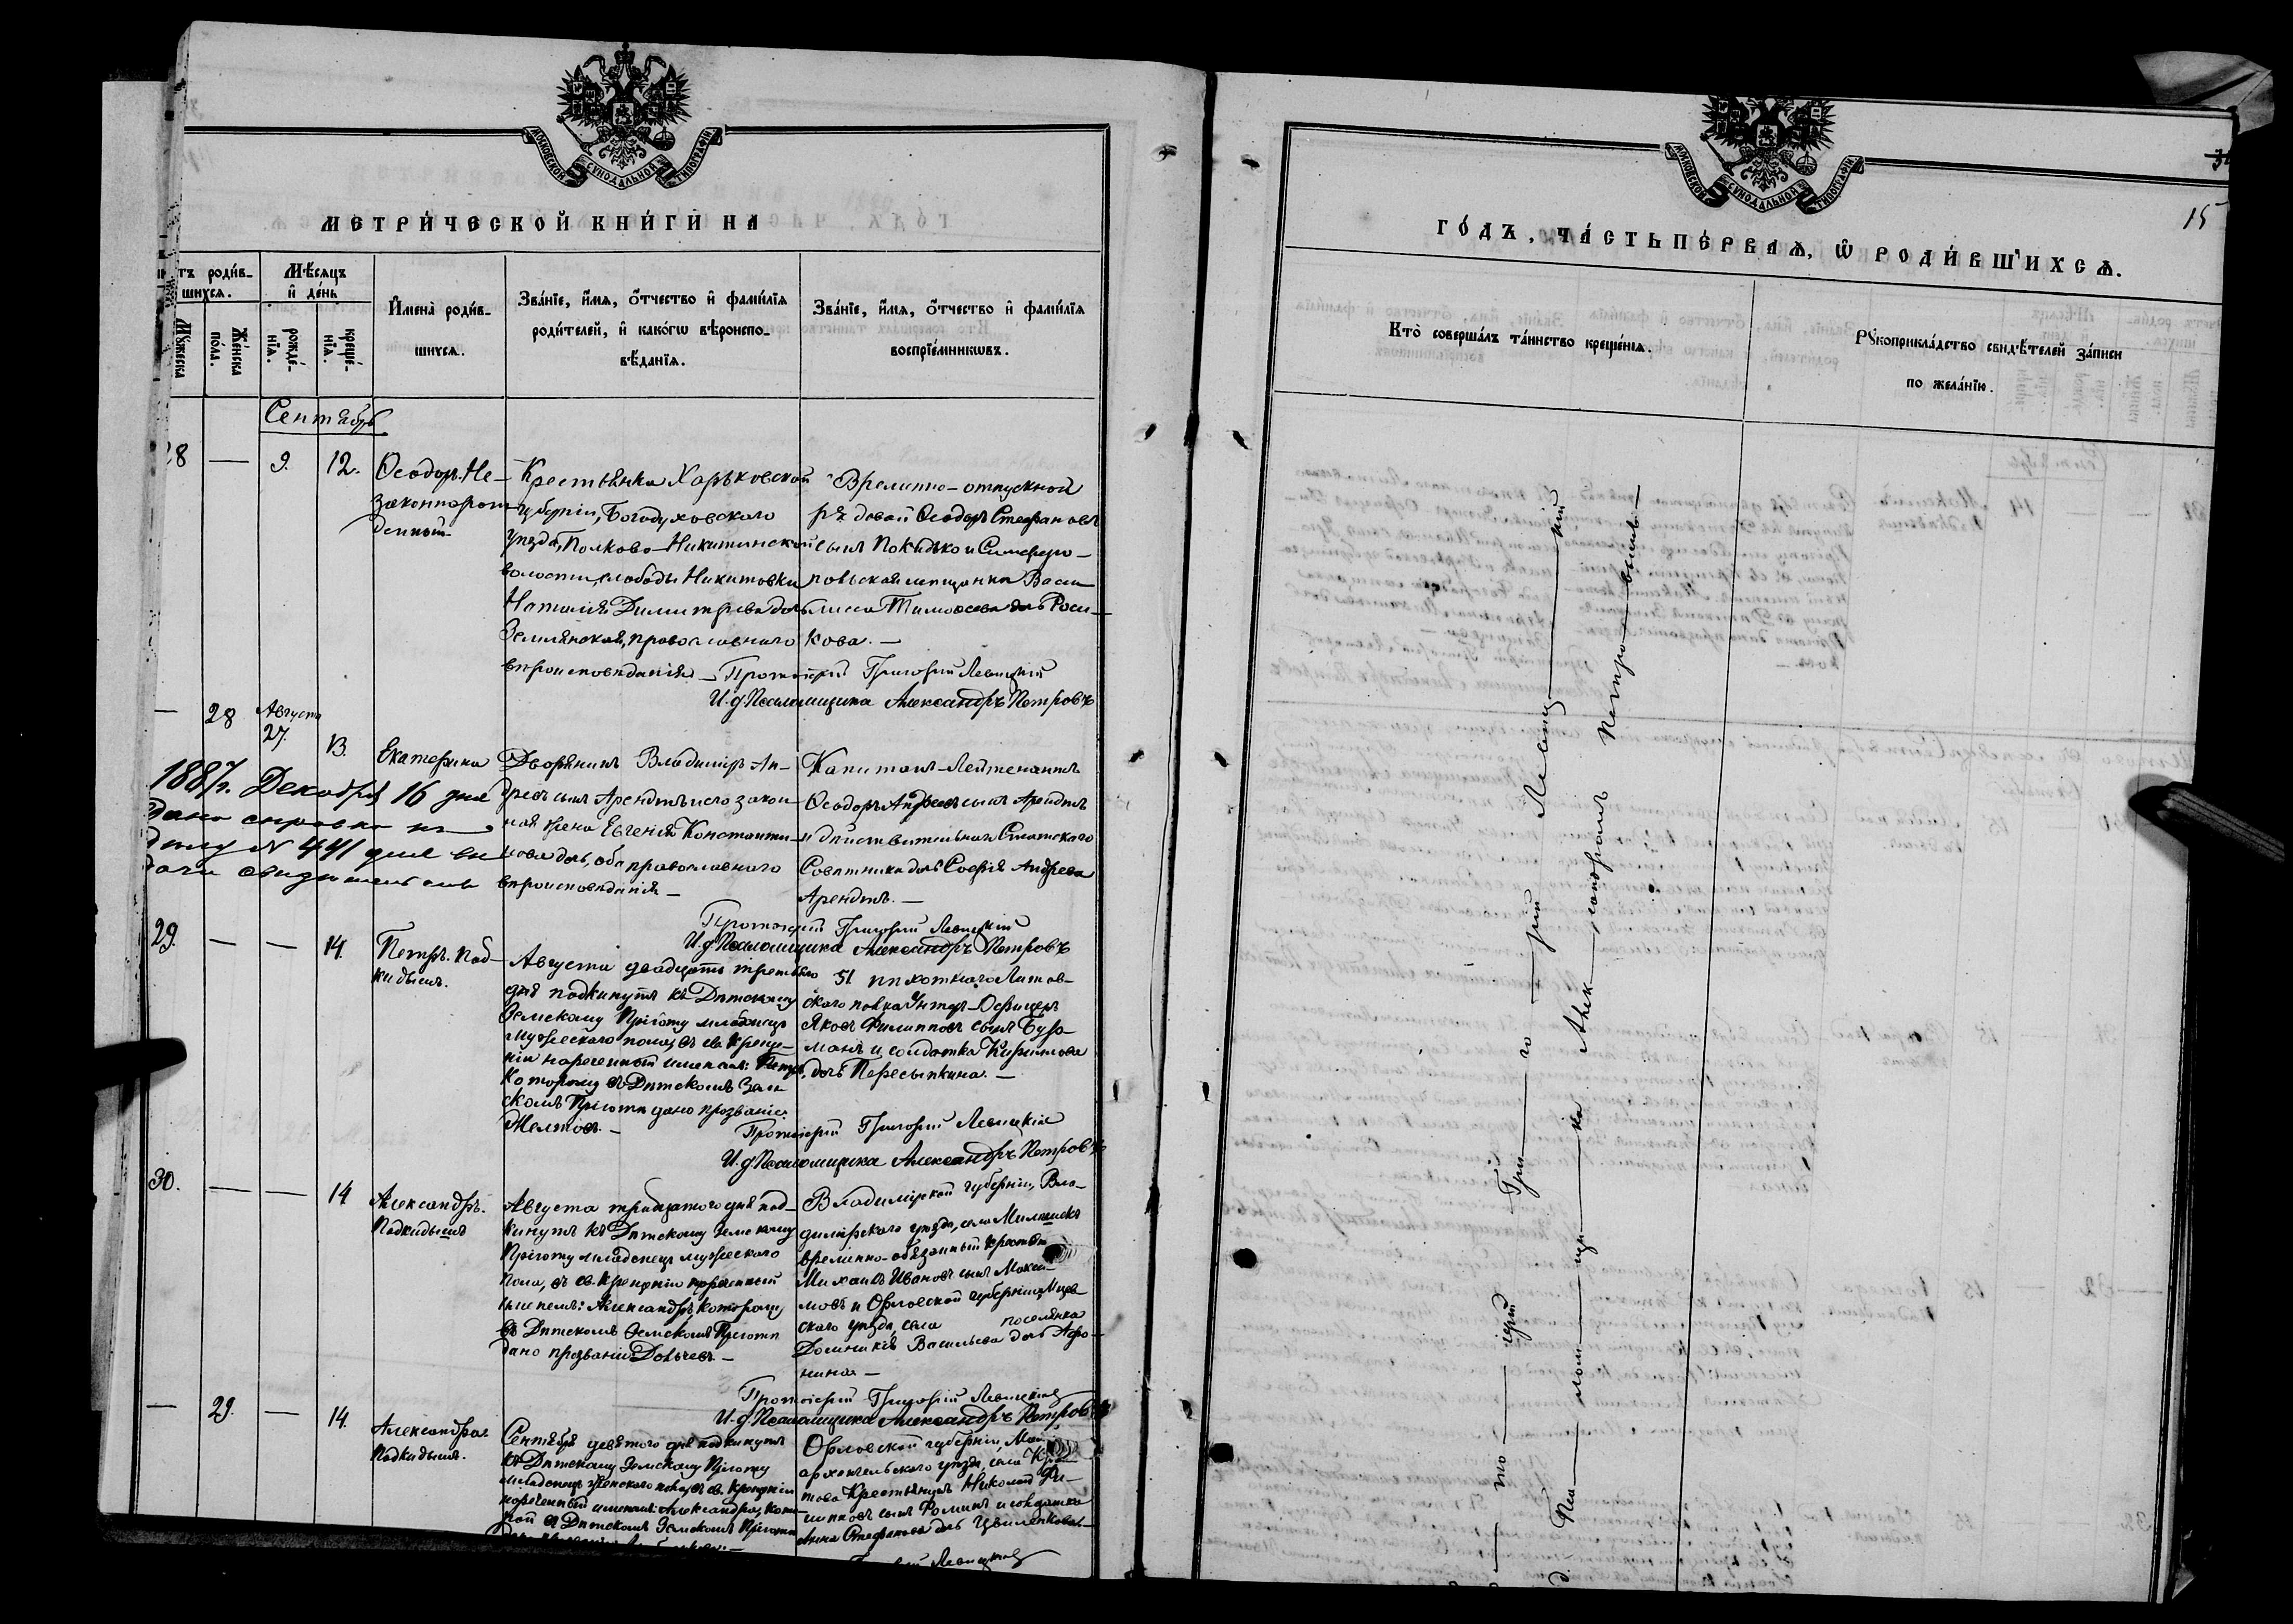 МОСКОВСКОЙ СѴНОДАЛЬНОЙ ТИПОГРАФІИ
МЕТРИ́ЧЕСКОЙ КНИ́ГИ НА
тъ роди́в-
шихся.
Мѣ́сяцъ
и҆ де́нь
Мꙋжеска
Же́нска
по́ла.
рожде́-
нїѧ.
креще́-
нїѧ.
И҆мена̀ роди́в-
шихся.
Зва́нїе, и҆́мѧ, ѻ҆́тчество и҆ фами́лїѧ
роди́телей, и҆ како́гѡ вѣроиспо-
вѣ́данїѧ.
Зва́нїе, и҆́мѧ, ѻ҆́тчество и҆ фами́лїѧ
воспрїе́мникѡвъ.
Сентябрь
28 — 9. 12.
Ѳеодоръ. Не-
законнорож-
денный.
Крестьянка Харьковской
губерніи, Богодуховскаго
уѣзда, Полково-Никитинской
волости, слободы Никитовки
Наталія Димитріева дочь
Землянская, православнаго
вѣроисповѣданія. —
Временно-отпускной
рядовой Ѳеодоръ Стефановъ
сынъ Покидько и Симферо-
польская мѣщанка Васи-
лисса Тимоѳеева дочь Роси-
кова. —
Протоіерей Григорій Левицкій
И. д. Псаломщика Александръ Петровъ
— 28 Августа
27. 13.
Екатерина
Дворянинъ Владиміръ Ан-
дреевъ сынъ Арендтъ и его закон-
ная жена Евгенія Константи-
нова дочь, оба православнаго
вѣроисповѣданія —
Капитанъ-Лейтенантъ
Ѳеодоръ Андреевъ сынъ Арендтъ
и дѣйствительнаго Статскаго
Совѣтника дочь Софія Андреева
Арендтъ. —
1887 г. Декабря 16 дня
дана справка по
дѣлу N 441 для вы
дачи свидѣтельства
Протоіерей Григорій Левицкій
И. д. Псаломщика Александръ Петровъ
29. — — 14.
Петръ. Под-
кидышъ.
Августа двадцать третьяго
дня подкинутъ къ Дѣтскому
Земскому Пріюту младенецъ
мужескаго пола, въ св. Креще-
ніи нареченный именемъ: Петръ,
которому въ Дѣтскомъ Зем-
скомъ Пріютѣ дано прозваніе:
Желтовъ. —
51 пѣхотнаго Литов-
скаго полка Унтеръ-Офицеръ
Яковъ Филипповъ сынъ Бур-
манъ и солдатка Кириллова
дочь Пересыпкина. —
Протоіерей Григорій Левицкій
И. д. Псаломщика Александръ Петровъ
30. — — 14
Александръ.
Подкидышъ
Августа тридцатаго дня под-
кинутъ къ Дѣтскому Земскому
Пріюту младенецъ мужескаго
пола, въ св. Крещеніи нареченный
именемъ: Александръ, которому
въ Дѣтскомъ Земскомъ Пріютѣ
дано прозваніе:
Владимірской губерніи, Вла-
димірскаго уѣзда, села
временно-обязанный крестьян
Михаилъ Ивановъ сынъ Макси-
мовъ и Орловской губерніи,
скаго уѣзда, села поселянка
Домникія Васильева дочь Афо-
нина —
Протоіерей Григорій Левицкій
И. д. Псаломщика Александръ Петровъ
— 29. — 14.
Александра.
Подкидышъ.
Сентября девятаго дня подкинутъ
къ Дѣтскому Земскому Пріюту
младенецъ женскаго пола, въ св. Крещеніи
нареченный именемъ: Александра, кото-
рой въ Дѣтскомъ Земскомъ Пріютѣ
Орловской губерніи, Мало
архангельскаго уѣзда, села
това Крестьянинъ Николай Фи-
липповъ сынъ Роминъ и солдатка
Анна Стефанова дочь
Левицкій
МОСКОВСКОЙ СѴНОДАЛЬНОЙ ТИПОГРАФІИ
15
ГО́ДЪ, ЧА́СТЬ ПЕ́РВАѦ, Ѡ҆ РОДИ́ВШИХСѦ.
Кто̀ соверша́лъ та́инство креще́нїѧ.
Рꙋкоприкла́дство свидѣ́телей за́писи
по жела́нїю.
Про — то — іерей Гри — го — рій Левиц — кій
И. д. Пса — лом — щи — ка Алек — сандръ Петро — въ